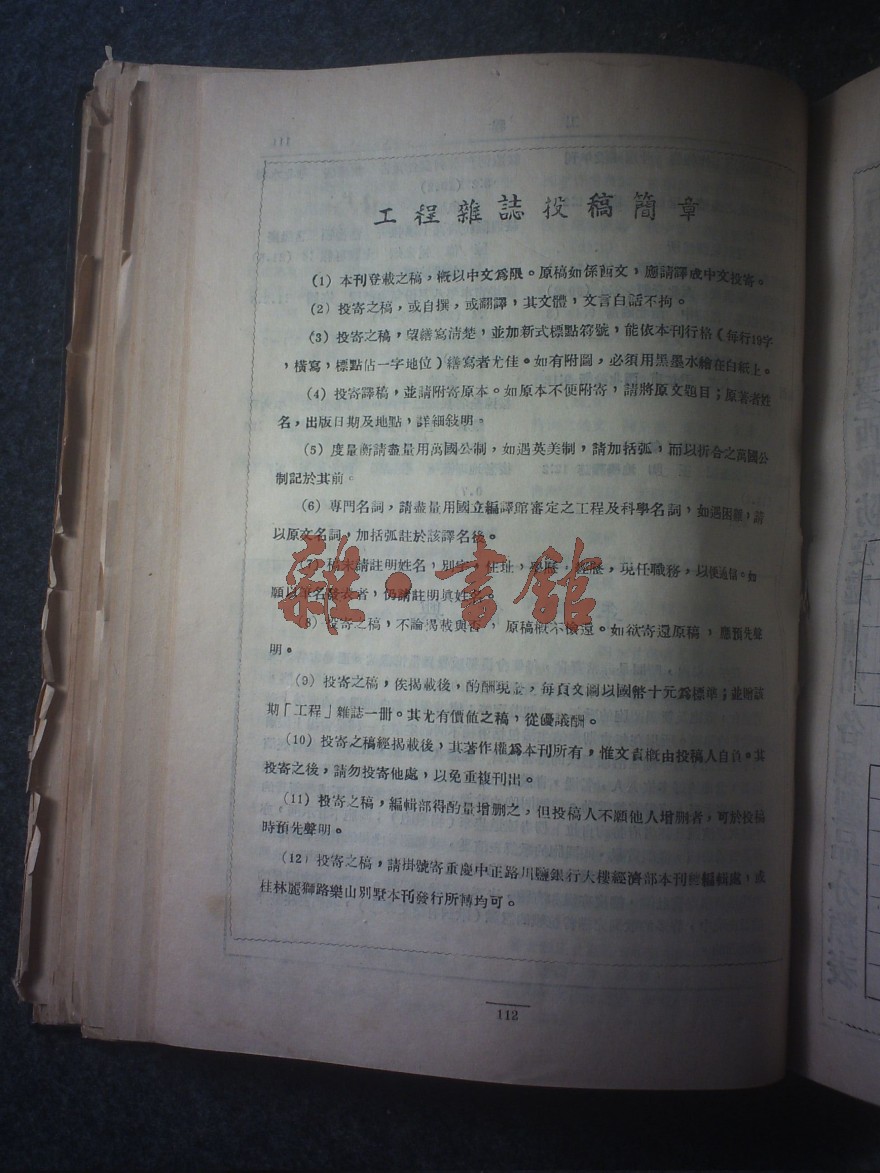 工程雜誌投稿簡章
(1) 本刊登載之稿，概以中文爲限。原稿如係西文，應請譯成中文投寄。
(2) 投寄之稿，或自撰，或翻譯，其文體，文言白話不拘。
(3) 投寄之稿，望繕寫清楚，並加新式標點符號，能依本刊行格（每行19字
，橫寫，標點佔一字地位）繕寫者尤佳。如有附圖，必須用黑墨水繪在白紙上。
(4) 投寄譯稿，並請附寄原本。如原本不便附寄，請將原文題目；原著者姓
名，出版日期及地點，詳細敍明。
(5) 度量衡請盡量用萬國公制，如遇英美制，請加括弧，而以折合之萬國公
制記於其前。
(6) 專門名詞，請盡量用國立編譯館審定之工程及科學名詞，如遇困難，請
以原文名詞，加括弧註於該譯名後。
(7) 稿末請註明姓名，別字，住址，學歷，經歷，現任職務，以便通信。如
願以筆名發表者，仍請註明眞姓名。
(8) 投寄之稿，不論揭載與否，原稿概不檢還。如欲寄還原稿，應預先聲
明。
(9) 投寄之稿，俟揭載後，酌酬現金，每頁文圖以國幣十元爲標準；並贈該
期「工程」雜誌一冊。其尤有價值之稿，從優議酬。
(10) 投寄之稿經揭載後，其著作權爲本刊所有，惟文責概由投稿人自負。其
投寄之後，請勿投寄他處，以免重複刊出。
(11) 投寄之稿，編輯部得酌量增删之，但投稿人不願他人增删者，可於投稿
時預先聲明。
(12) 投寄之稿，請掛號寄重慶中正路川鹽銀行大樓經濟部本刊總編輯處，或
桂林麗獅路樂山別墅本刊發行所轉均可。
雜·書館
112